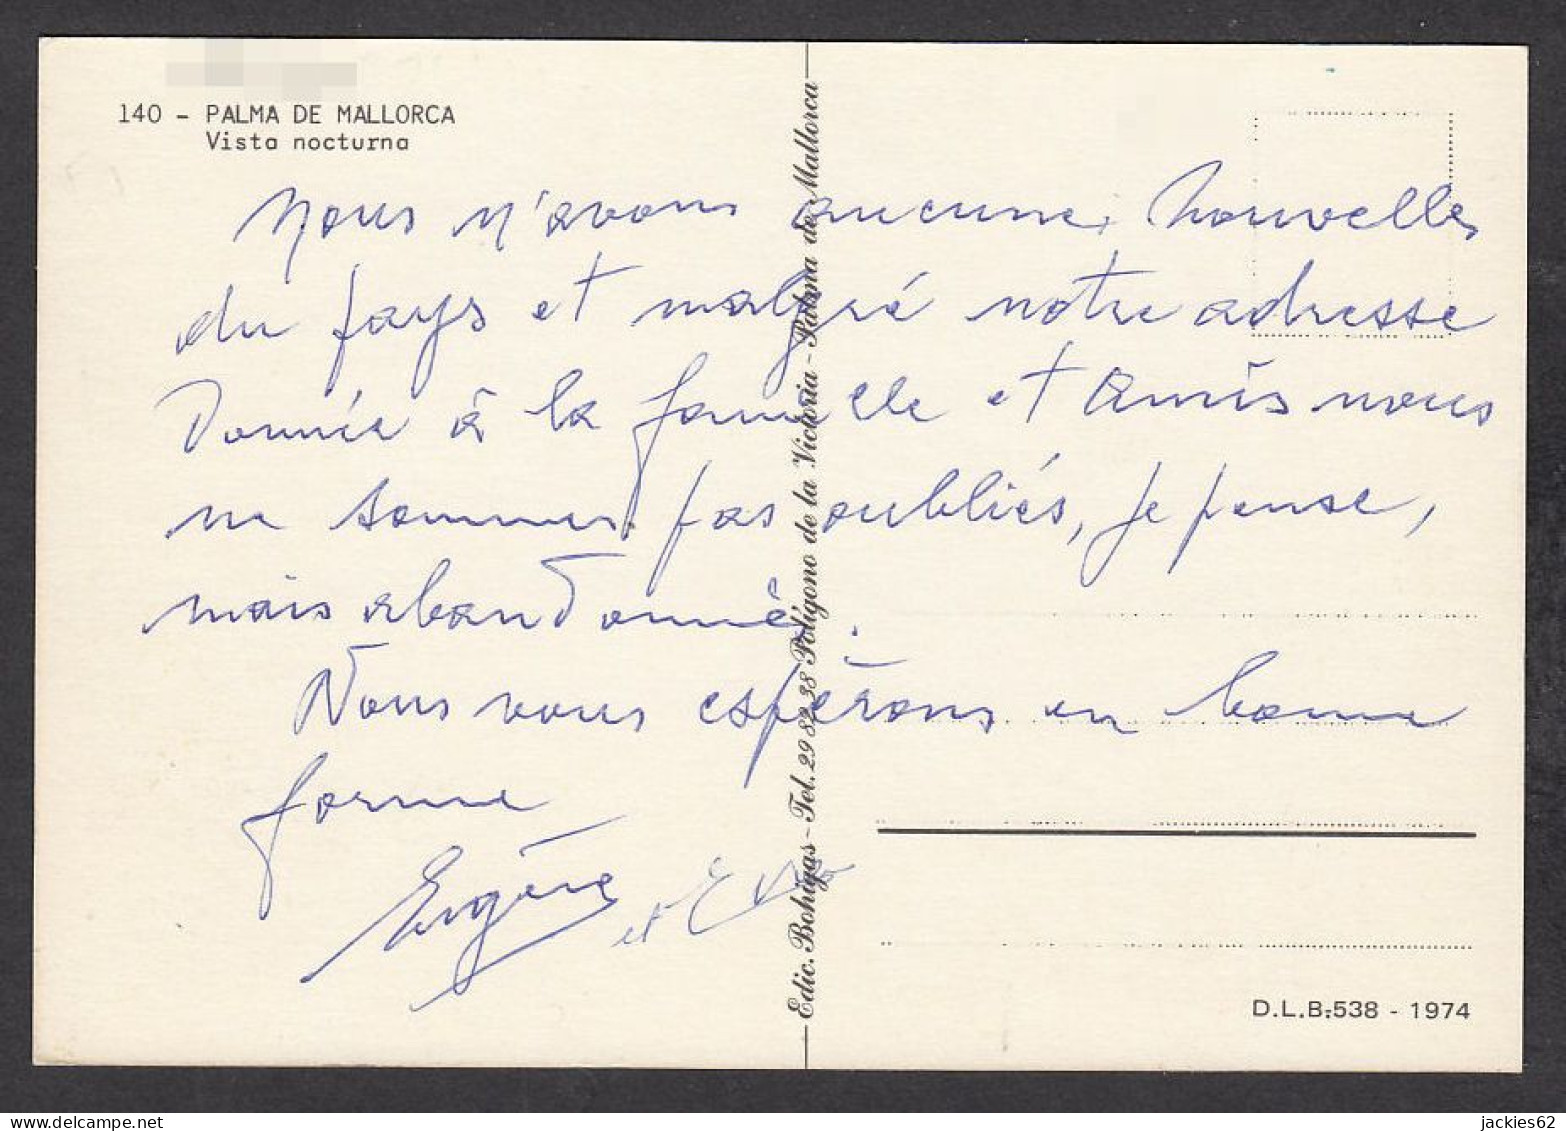 140 - PALMA DE MALLORCA
Vista nocturna
Nous n'avons aucune nouvelles
du pays et malgré notre adresse
Donnée à la famille et amis nous
ne sommes pas oubliés, je pense,
mais abandonnés.
Nous vous espérons en bonne
forme
Eugène et Eva
Edic. Bohigas - Tel. 29 82 38 Polígono de la Victoria - Palma de Mallorca
D.L.B-538 - 1974
jackies62